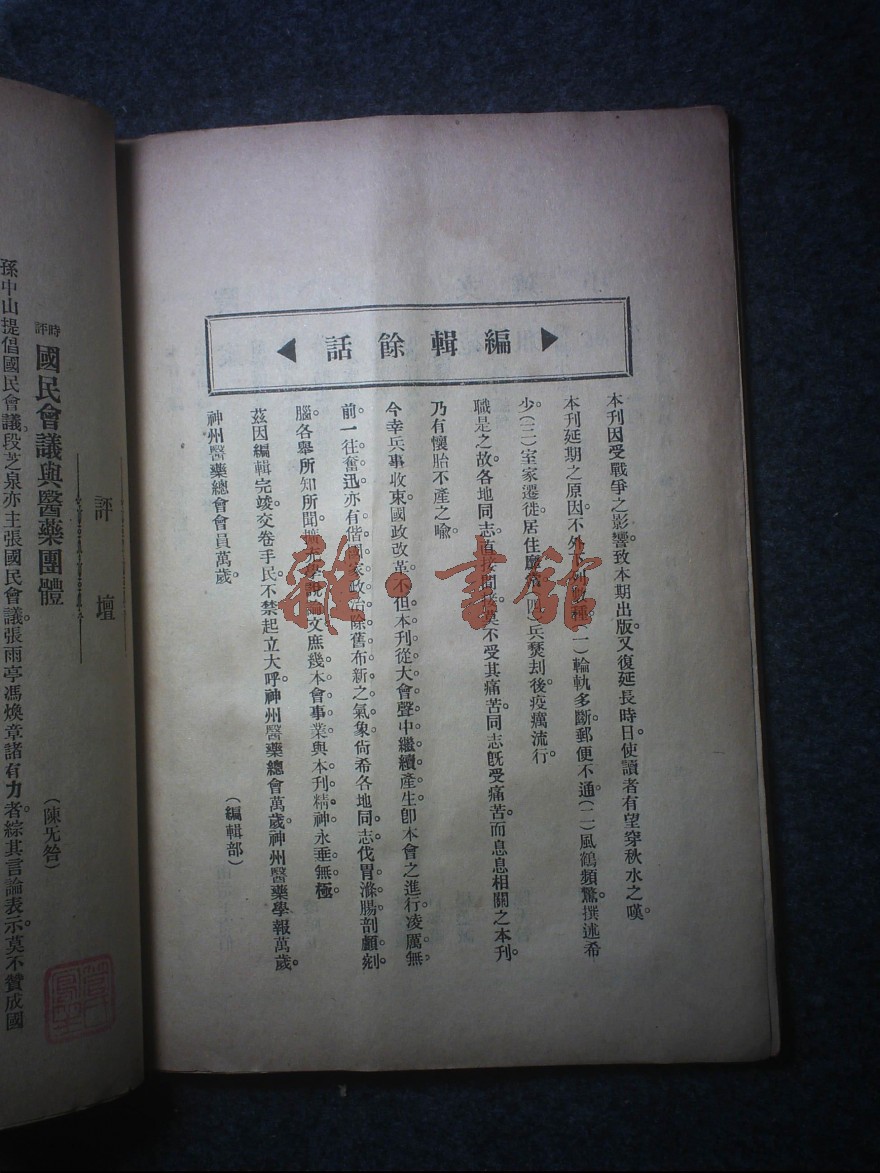 編輯餘話
本刊因受戰爭之影響致本期出版又復延長時日使讀者有望穿秋水之嘆。
本刊延期之原因不外下列數種(一)輪軌多斷。郵便不通(二)風鶴頻驚。撰述希
少。(三)室家遷徙。居住靡常(四)兵燹刦後。疫癘流行。
職是之故。各地同志直接間接莫不受其痛苦。同志旣受痛苦。而息息相關之本刊。
乃有懷胎不產之喩
今幸兵事收束。國政改革。不但本刊從大會聲中繼續產生。卽本會之進行。凌厲無
前。一往奮迅。亦有偕國家政治除舊布新之氣象。尙希各地同志。伐胃滌腸。剖顱剜
腦。各舉所知所聞。學說論文。庶幾本會事業與本刊精神永垂無極
茲因編輯完竣。交卷手民。不禁起立大呼。神州醫藥總會萬歲。神州醫藥學報萬歲。
神州醫藥總會會員萬歲。
(編輯部)
評壇
時評 國民會議與醫藥團體
(陳旡咎)
孫中山提倡國民會議。段芝泉亦主張國民會議。張雨亭馮煥章諸有力者。綜其言論表示。莫不贊成國
雜·書館